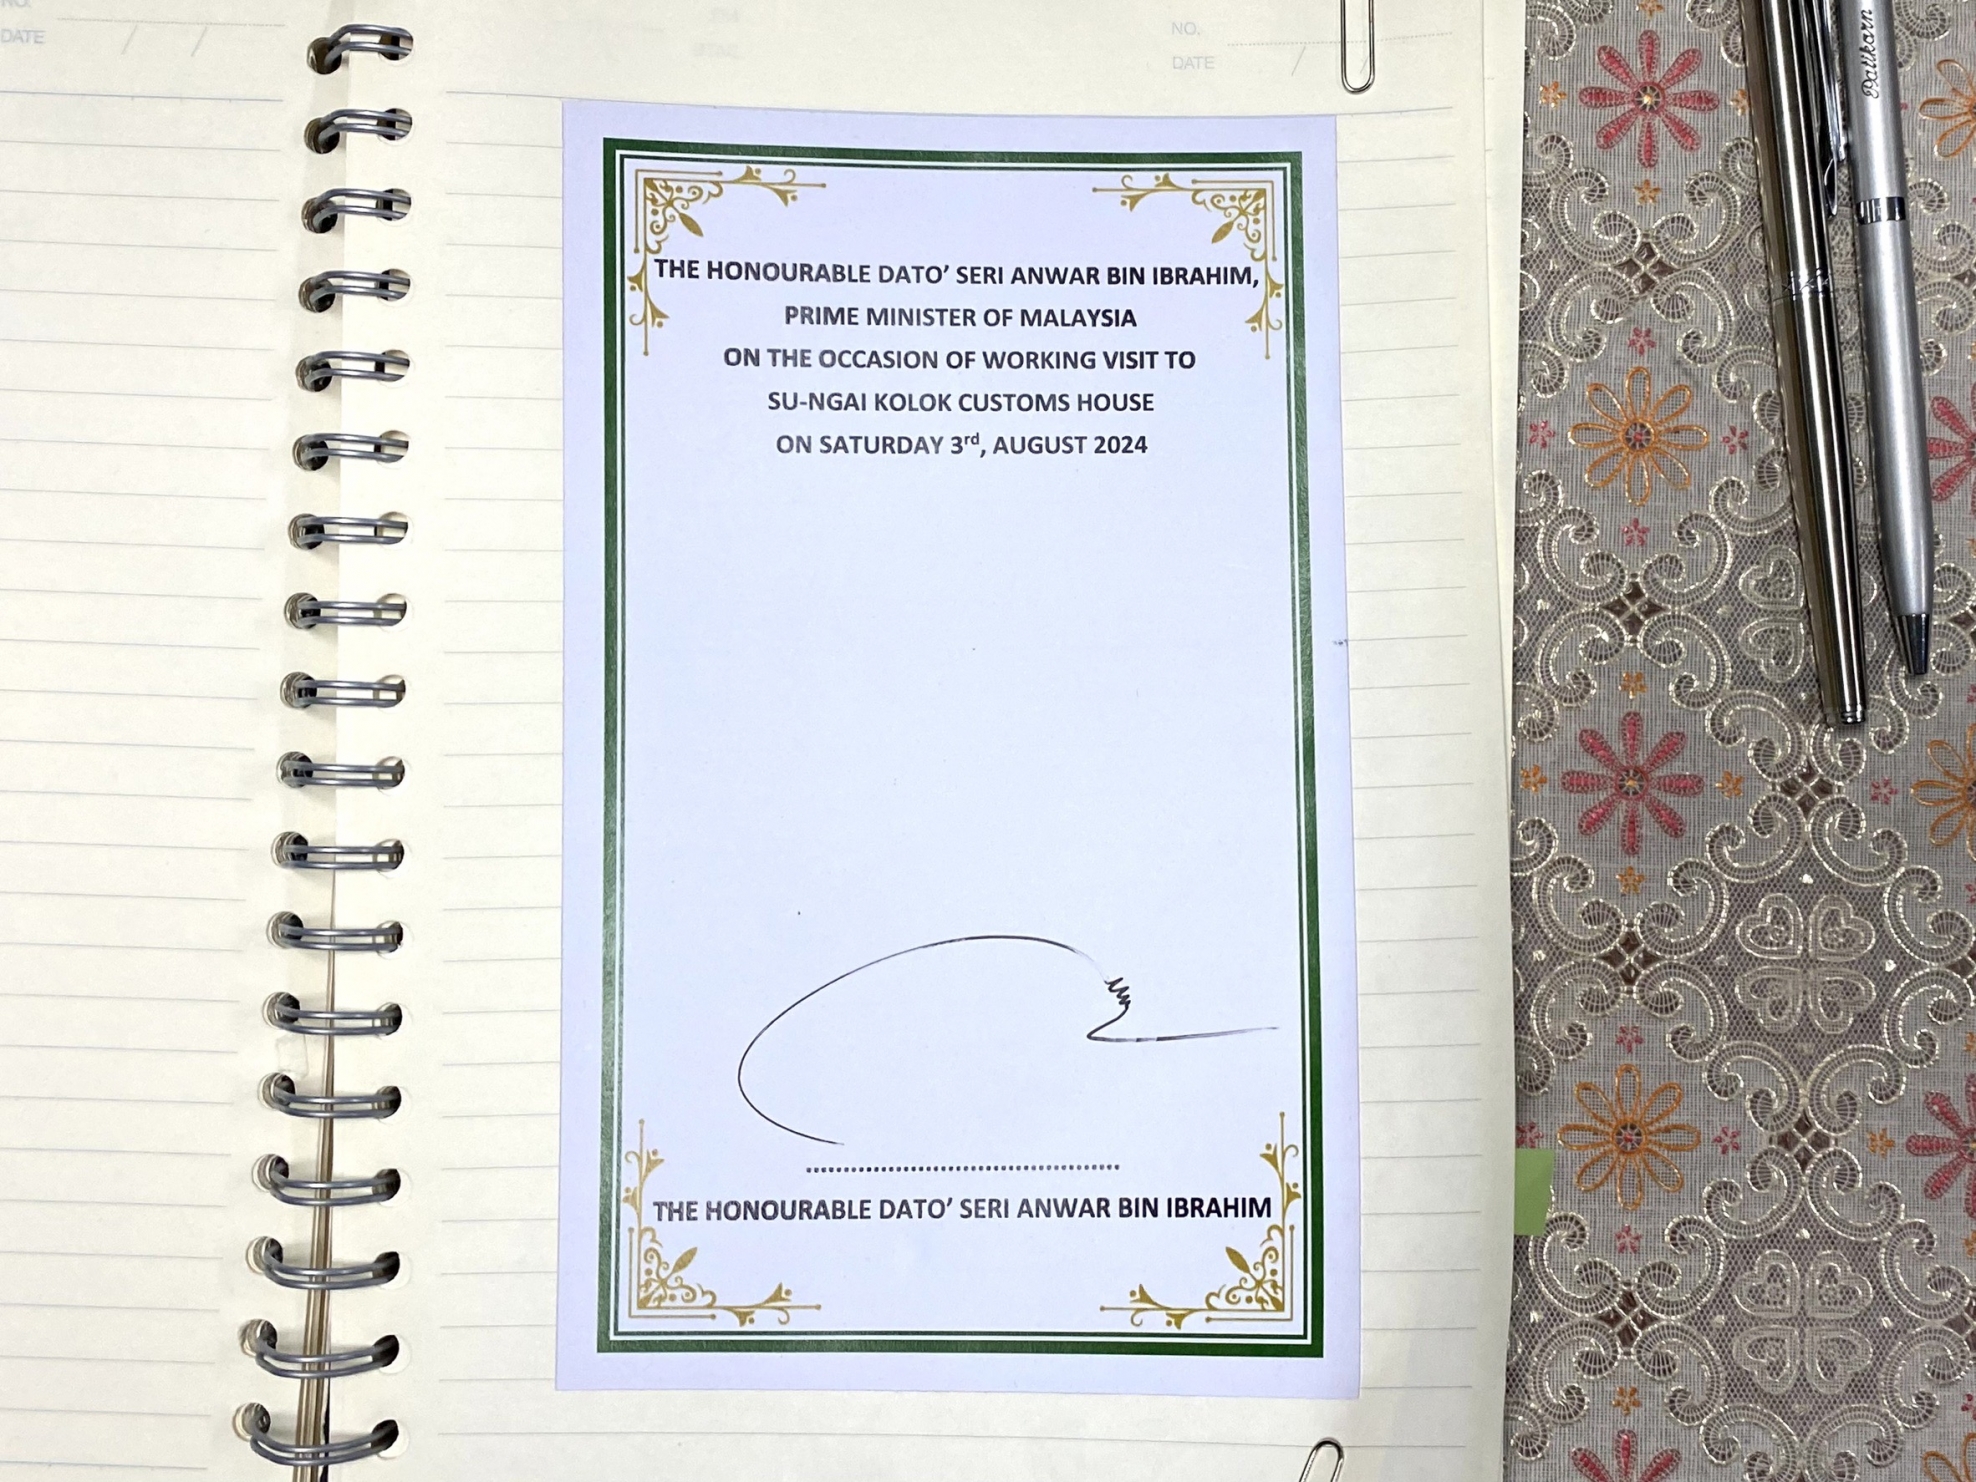 NO.
DATE / /
NO.
DATE / /
THE HONOURABLE DATO’ SERI ANWAR BIN IBRAHIM,
PRIME MINISTER OF MALAYSIA
ON THE OCCASION OF WORKING VISIT TO
SU-NGAI KOLOK CUSTOMS HOUSE
ON SATURDAY 3rd, AUGUST 2024
THE HONOURABLE DATO’ SERI ANWAR BIN IBRAHIM